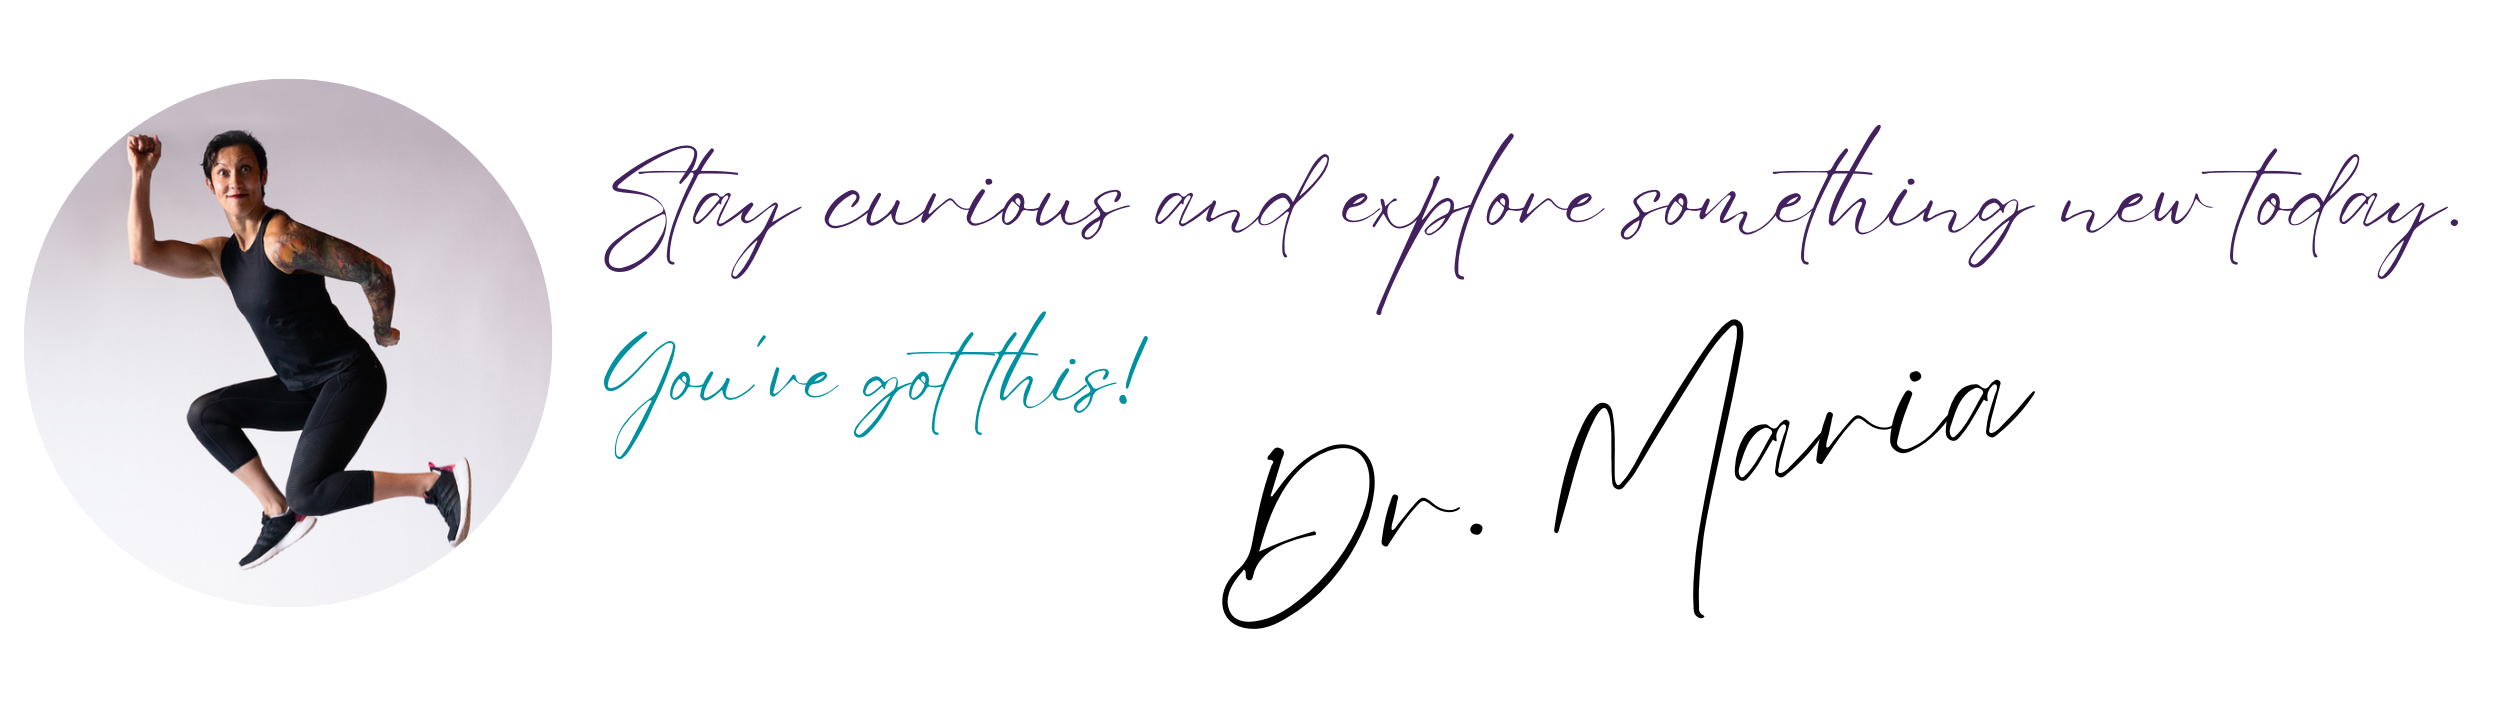 Stay curious and explore something new today.
You've got this!
Dr. Maria